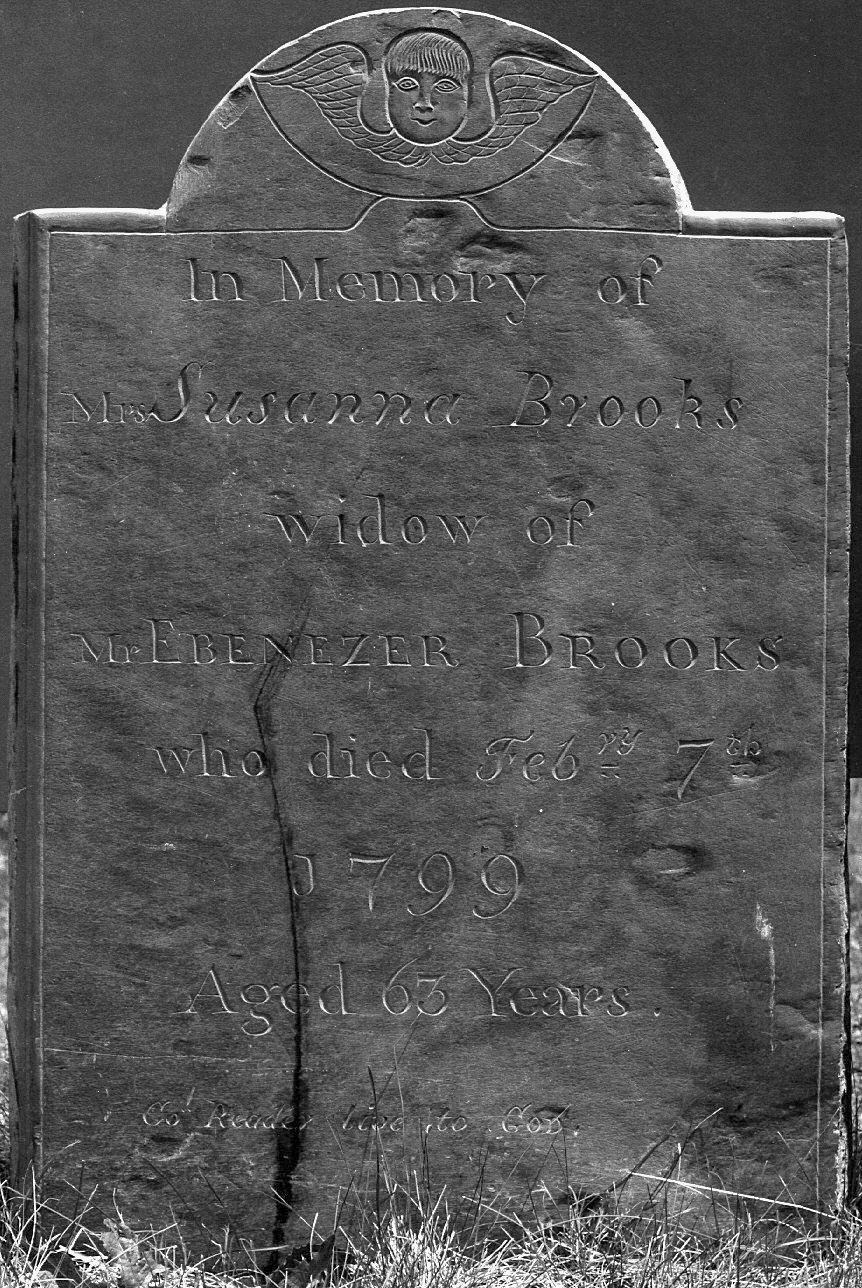 In Memory of
Mrs Susanna Brooks
widow of
Mr EBENEZER BROOKS
who died Feb ry 7 th
1799
Aged 63 Years.
Reader live to God.